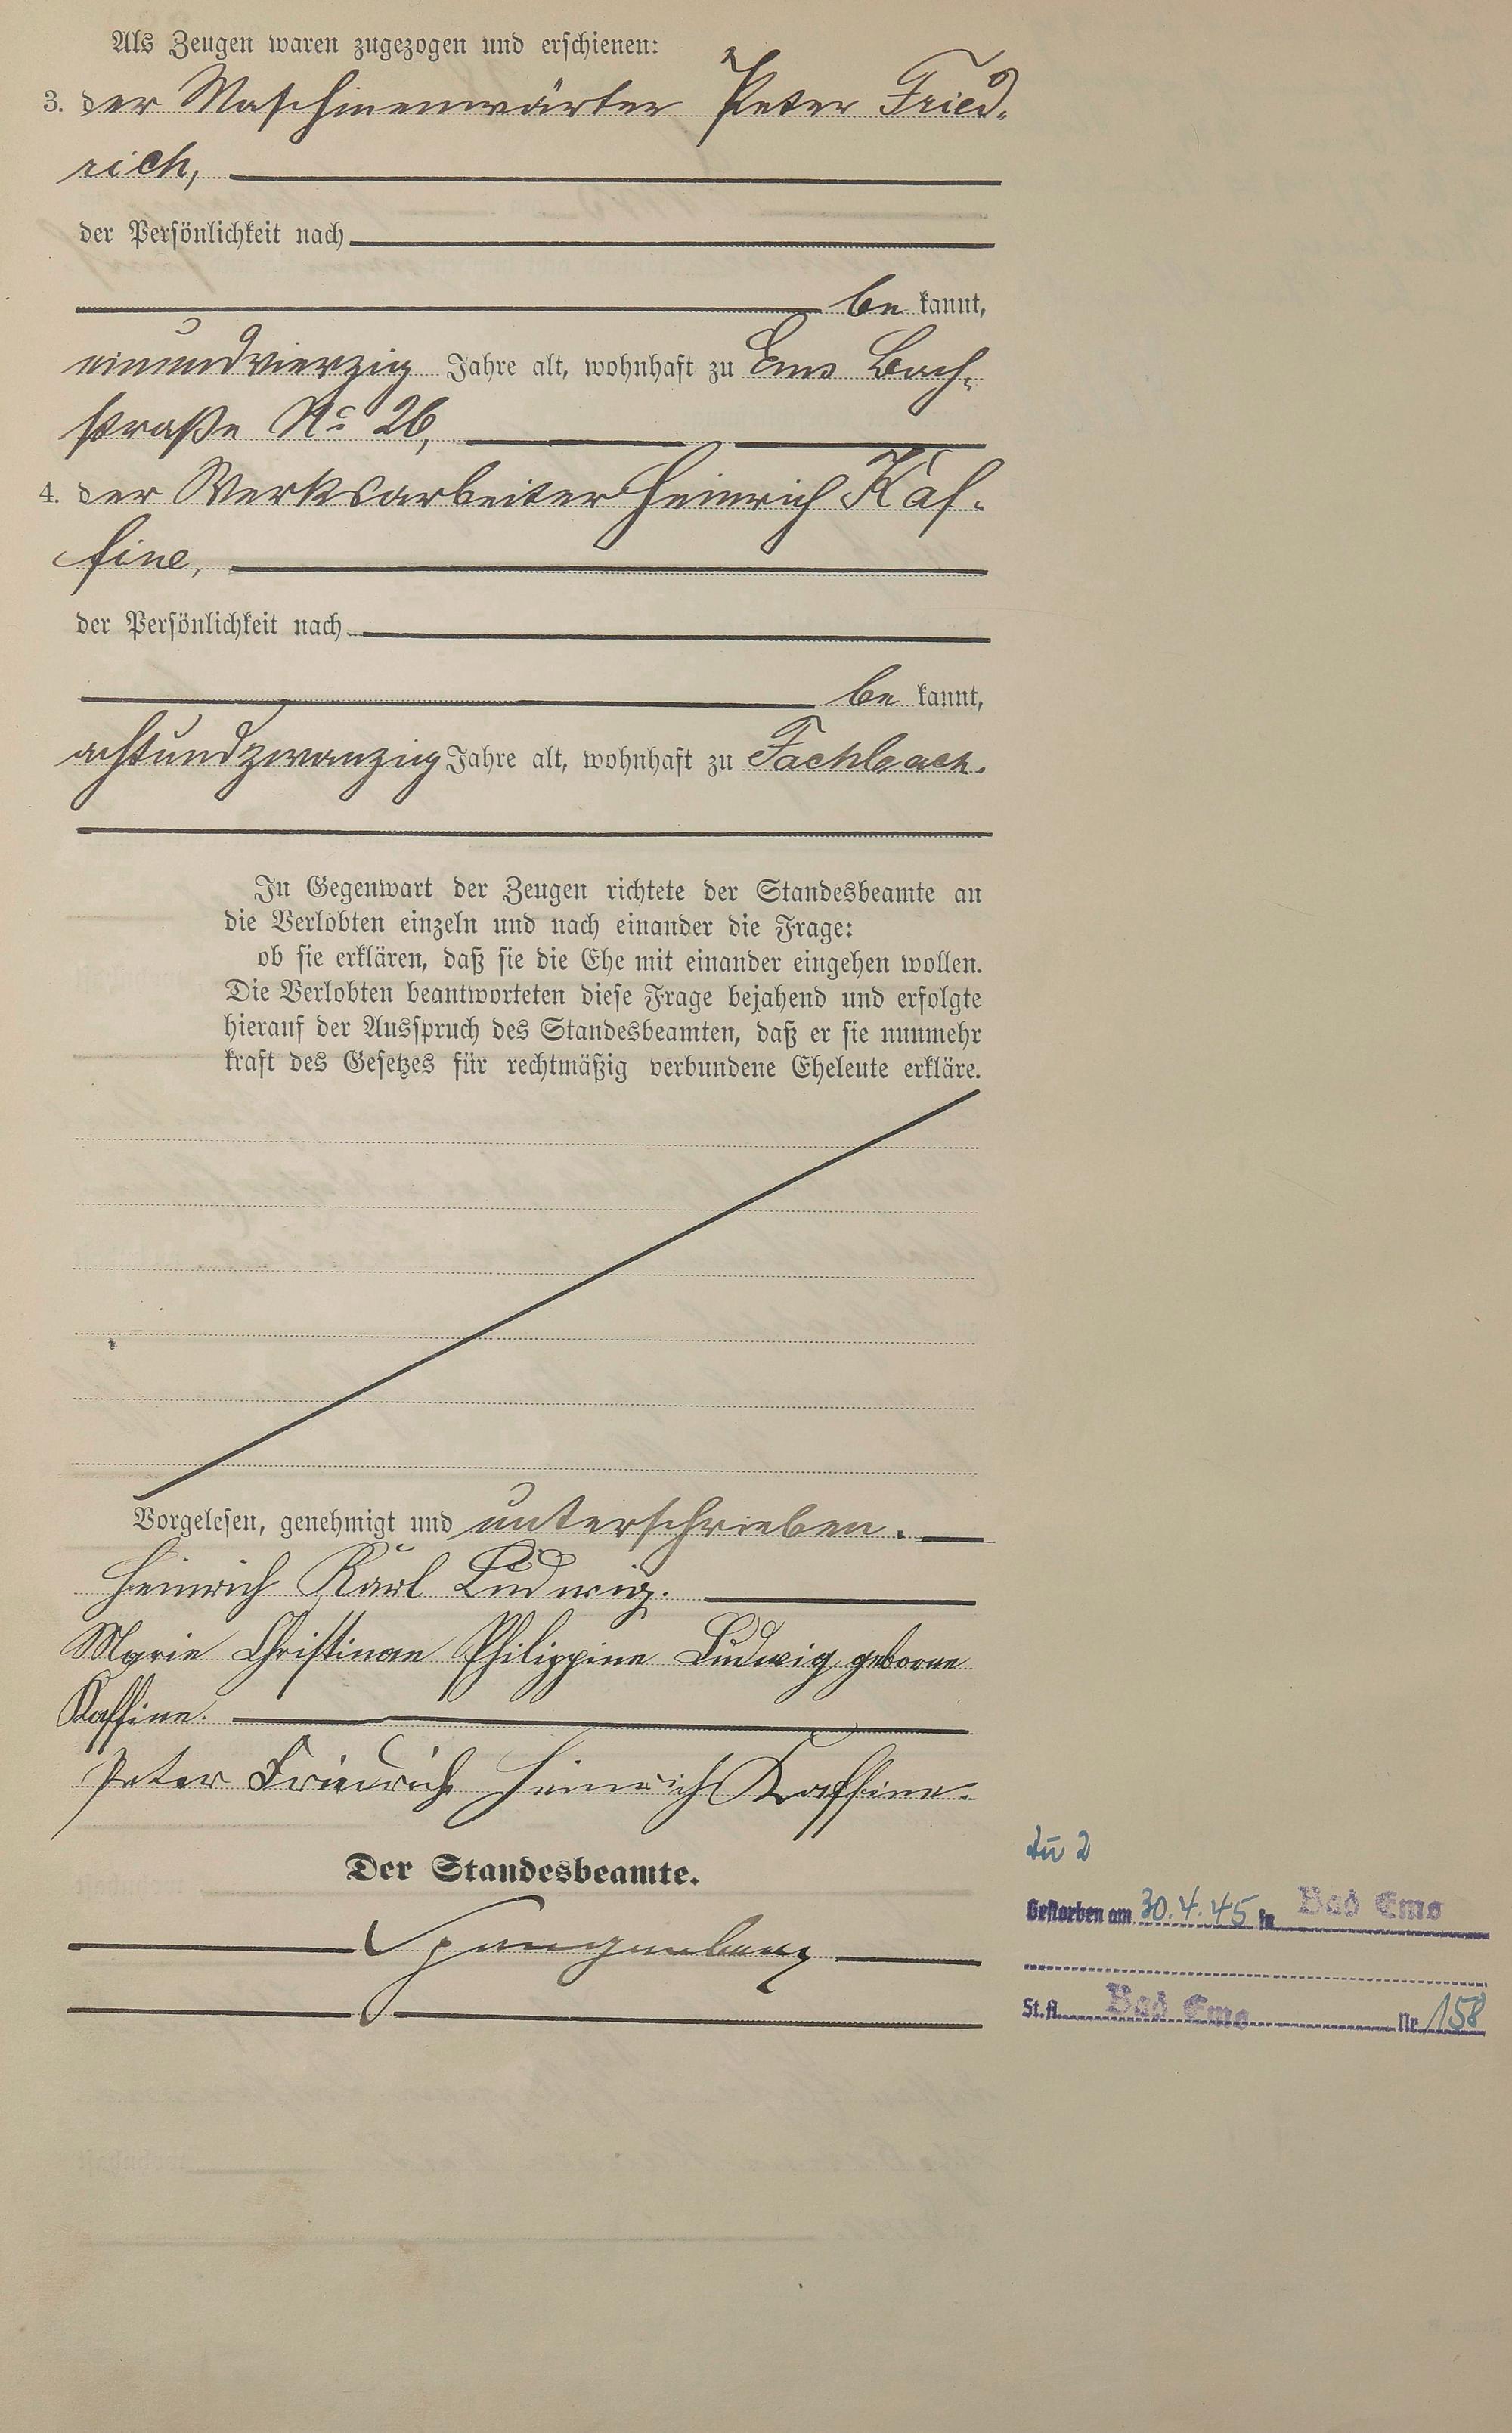 Als Zeugen waren zugezogen und erschienen:
3. der Maschinenwärter Peter Fried-
rich,
der Persönlichkeit nach
be kannt,
einundvierzig Jahre alt, wohnhaft zu Ems Bach-
straße No 26,
4. der Werksarbeiter Heinrich Kaf-
fine,
der Persönlichkeit nach
be kannt,
achtundzwanzig Jahre alt, wohnhaft zu Fachbach.
In Gegenwart der Zeugen richtete der Standesbeamte an
die Verlobten einzeln und nach einander die Frage:
ob sie erklären, daß sie die Ehe mit einander eingehen wollen.
Die Verlobten beantworteten diese Frage bejahend und erfolgte
hierauf der Ausspruch des Standesbeamten, daß er sie nunmehr
kraft des Gesetzes für rechtmäßig verbundene Eheleute erkläre.
Vorgelesen, genehmigt und unterschrieben.
Heinrich Karl Ludwig.
Marie Christinae Philippine Ludwig geborne
Kaffine.
Peter Friedrich Heinrich Kaffine.
Der Standesbeamte.
Spangenberg
Zu 2
Gestorben am 30.4.45 in Bad Ems
St.A. Bad Ems Nr. 158